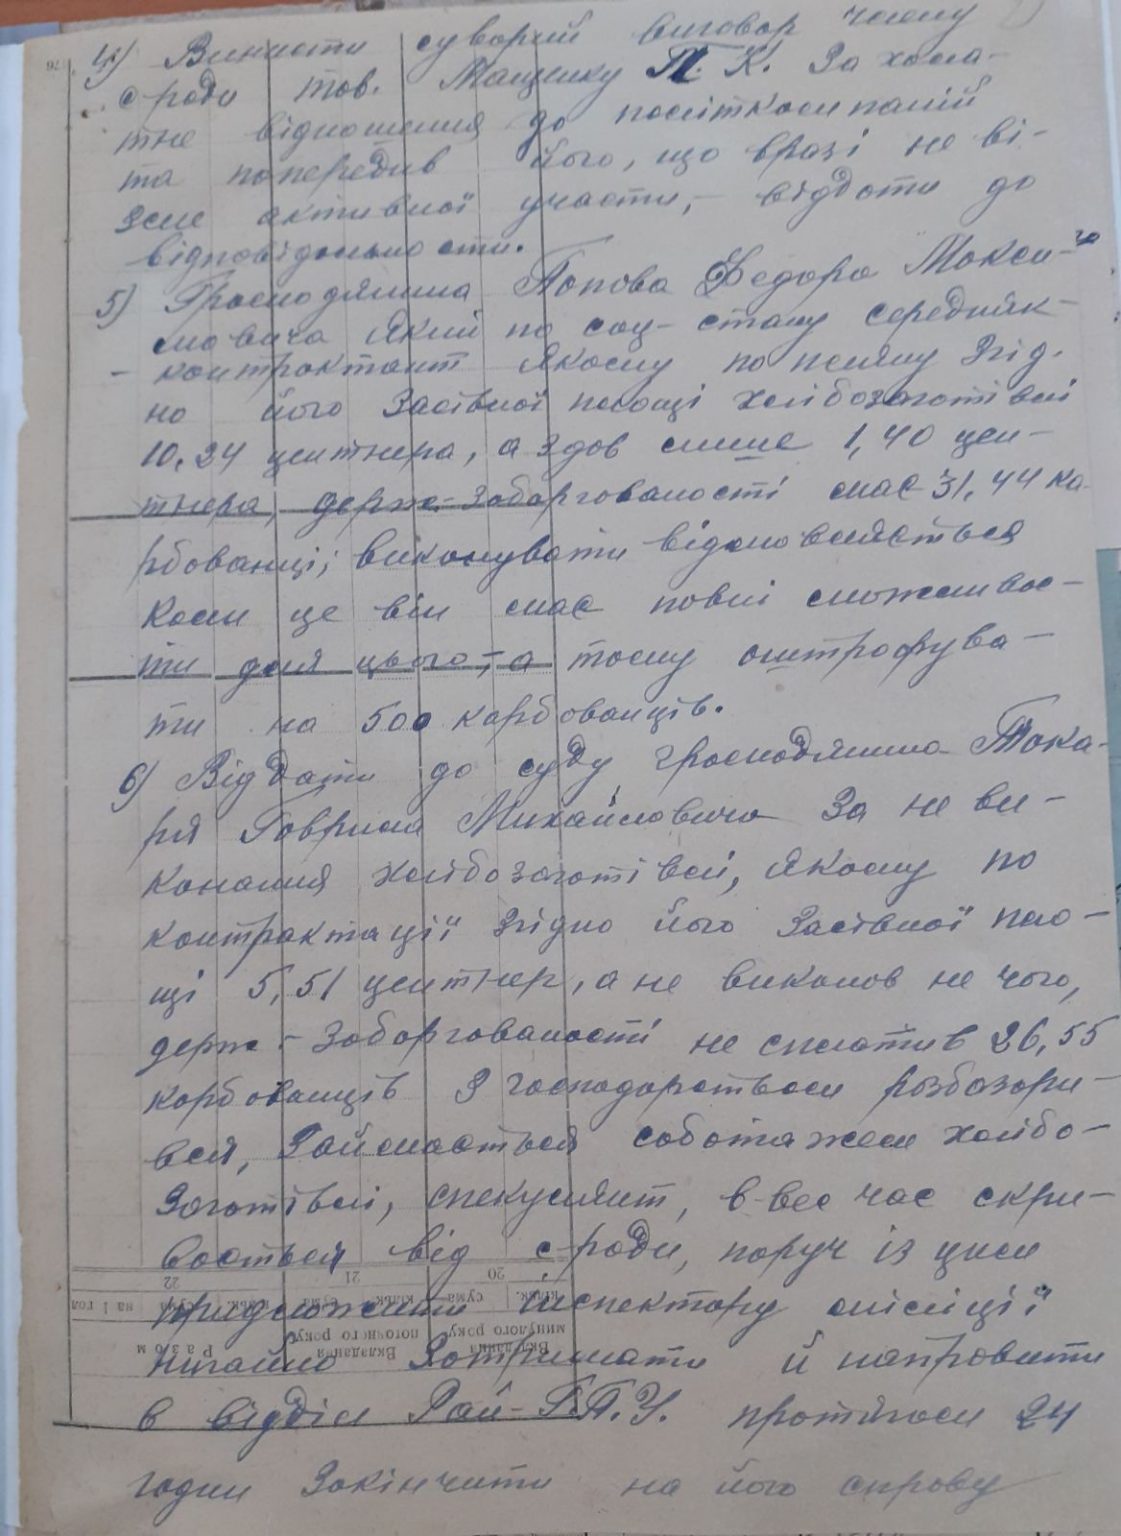 4) Винисти суворий виговор члену
с-ради тов. Мащенку П. К. За хала-
тне відношення до політкампаній
та попередив його, що вразі не ві-
зме активної участи, - віддати до
відповідальности.
5) Громодянина Попова Федора Макси-
мовича Який по соц-стану середняк-
- контрактант Якому по пляну Згід-
но його Засівної площі хлібозаготівлі
10,34 центнера, а здав лише 1,40 цен-
тнера, держ-заборгованості має 31,44 ка-
рбованці; виконувати відмовляється
Коли це він має повні можливос-
ти для цього, - а тому оштрафува-
ти на 500 карбованців.
6) Віддати до суду громодянина Тока-
ря Гаврила Михайловича За не ви-
конання хлібозаготівлі, Якому по
контрактації Згідно його Засівної пло-
щі 5,51 центнер, а не виконав не чого,
держ - Заборгованості не сплатив 26,55
карбованців З господарством розбазари-
вся, Займається саботажем хлібо-
Заготівлі, спекулянт, в-вес час скри-
вається від с-ради, поруч із цим
придложити інспектору міліції
нигайно Затримати й направити
в відділ Рай-Г.П.У. протягом 24
годин Закінчити на його справу
76
22 21 20
на 1 гол. сума кільк. сума кільк. сума кільк.
Разом Вкладання поточного року Вкладання минулого року